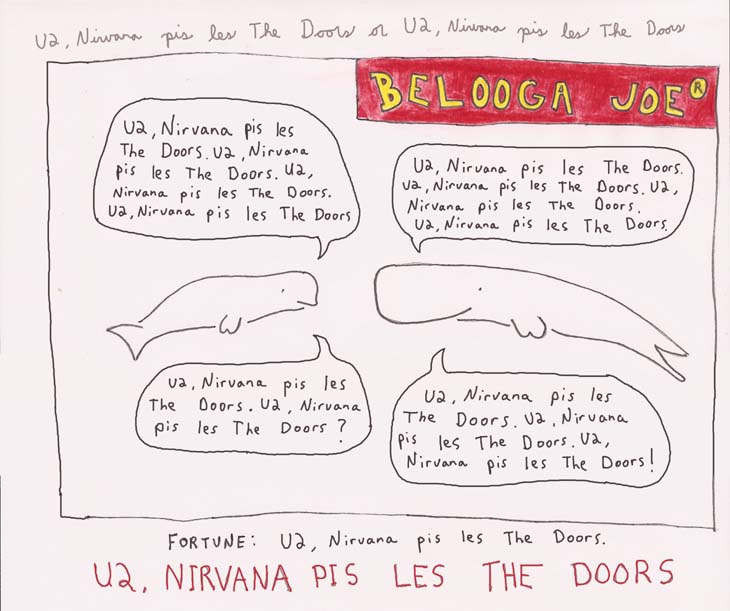 U2, Nirvana pis les The Doors or U2, Nirvana pis les The Doors
BELOOGA JOE®
U2, Nirvana pis les
The Doors. U2, Nirvana
pis les The Doors. U2,
Nirvana pis les The Doors.
U2, Nirvana pis les The Doors
U2, Nirvana pis les The Doors.
U2, Nirvana pis les The Doors. U2,
Nirvana pis les The Doors.
U2, Nirvana pis les The Doors.
U2, Nirvana pis les
The Doors. U2, Nirvana
pis les The Doors?
U2, Nirvana pis les
The Doors. U2, Nirvana
pis les The Doors. U2,
Nirvana pis les The Doors!
FORTUNE: U2, Nirvana pis les The Doors.
U2, NIRVANA PIS LES THE DOORS